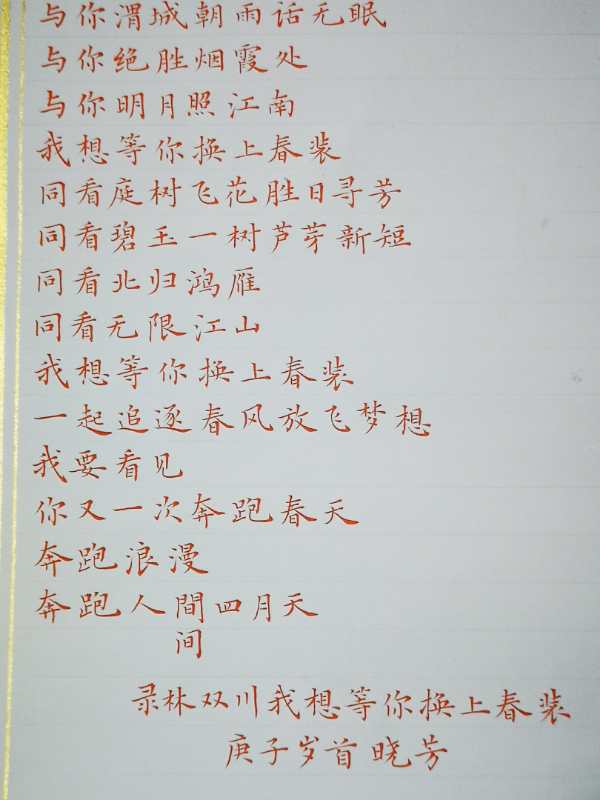 与你渭城朝雨话无眠
与你绝胜烟霞处
与你明月照江南
我想等你换上春装
同看庭树飞花胜日寻芳
同看碧玉一树芦芽新短
同看北归鸿雁
同看无限江山
我想等你换上春装
一起追逐春风放飞梦想
我要看见
你又一次奔跑春天
奔跑浪漫
奔跑人間四月天
间
录林双川我想等你换上春装
庚子岁首晓芳